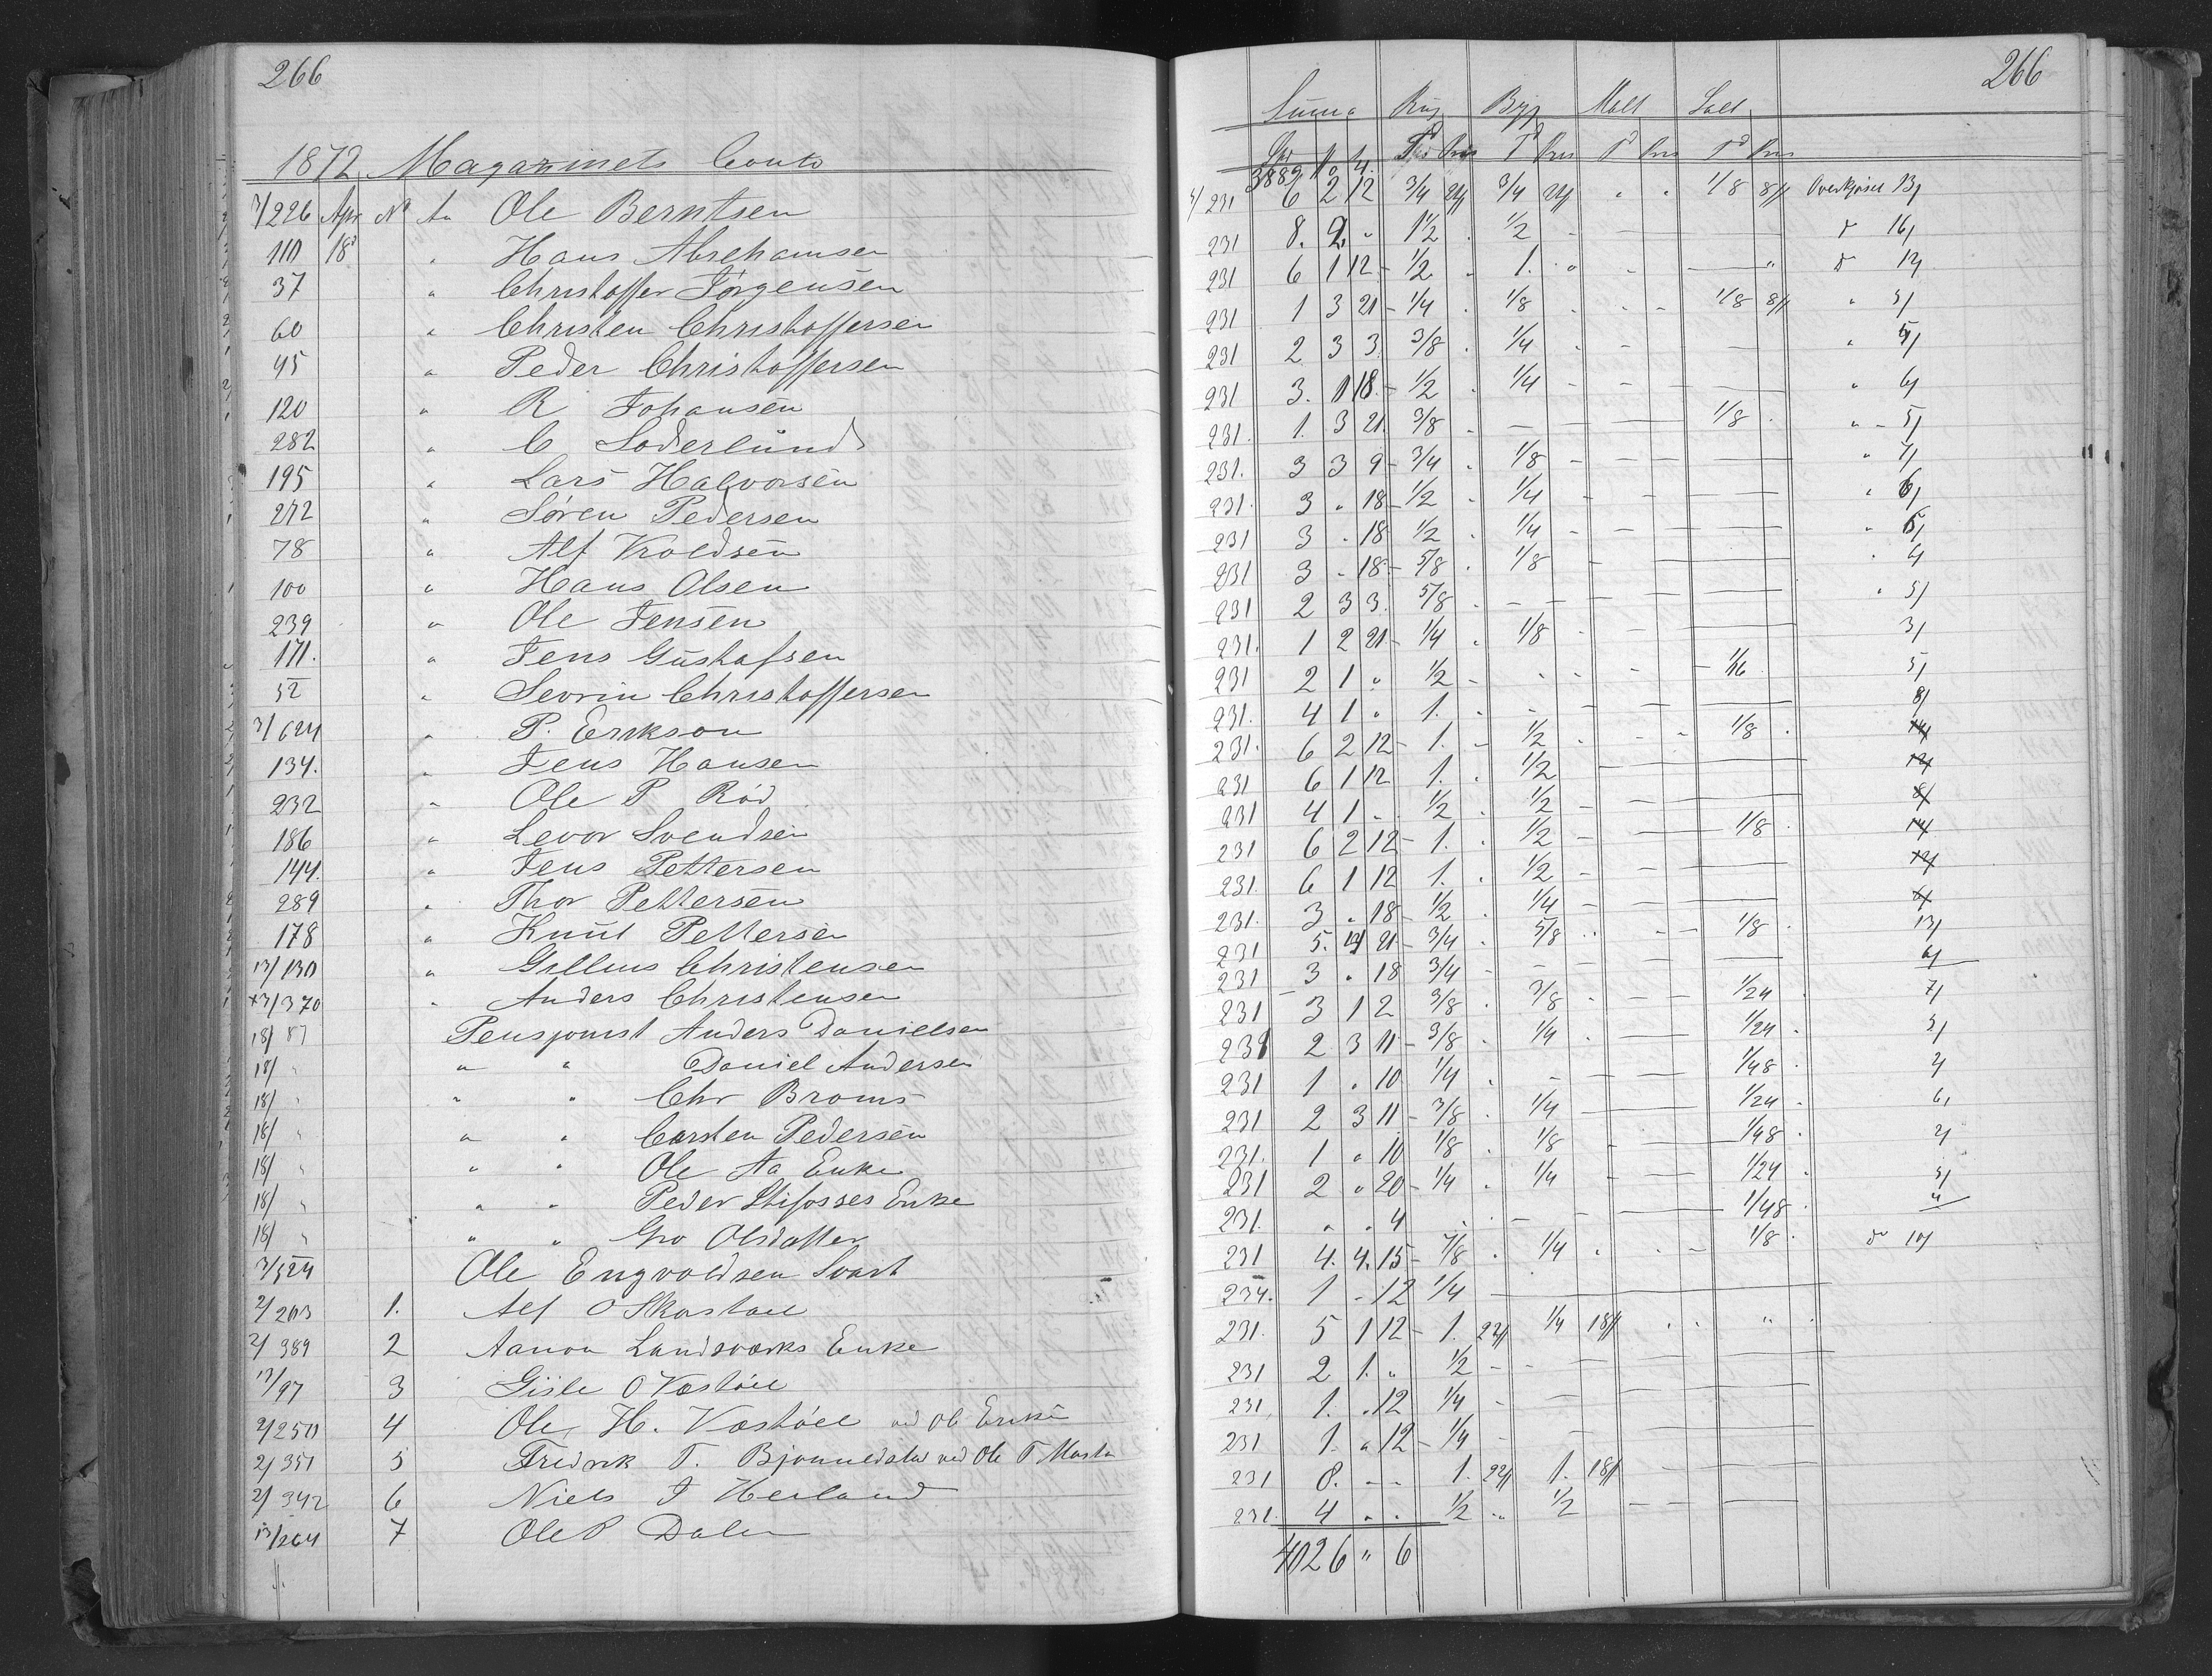 266
1872 Magazinets Conto
3/226 Apr No An Ole Berntsen
110 18d " Hans Abrehamsen
37 " Christoffer Jörgensen
60 " Christen Christoffersen
45 " Peder Christoffersen
120 " R Johansen
282 " C Soderlund
195 " Lars Halvorsen
272 " Sören Pedersen
78 " Alf Kroldsen
100 " Hans Olsen
239 " Ole Jensen
171. " Jens Gustafsen
52 " Sevrin Christoffersen
3/624 " P. Erikson
134. " Jens Hansen
232 " Ole P Röd
186 " Levor Svendsen
144. " Jens Pettersen
289 " Thor Pettersen
178 " Knut Pettersen
13/130 " Gellius Christensen
13/370 " Anders Christensen
18/87 Pensjonist Anders Danielsen
18/ " " " Daniel Andersen
18/ " " " Chr Broms
18/ " " " Carsten Pedersen
18/ " " " Ole Aa Enke
18/ " " " Peder Stifosses Enke
18/ " " " Gro Olsdatter
3/524 Ole Engvoldsen Svart
2/203 1. Alf O Skastøel
2/389 2 Aanon Landsværks Enke
13/97 3 Gisle O Vastöel
2/250 4 Ole H. Vastöel ved Ol Enke
2/351 5 Fredrik T. Bjonnedalen ved Ole T
2/342 6 Niels J Heiland
13/264 7 Ole P Dalen
266
Summa Rug Byg Malt Salt
3889
4/231 6 2 12 3/4 3/4 " " 1/8 Overkjösel 13/
231 8. 2 " 1 1/2 1/2 - d 16/
231 6 1 12 - 1/2 1. " - " d 12/
231 1 3 21 - 1/4 1/8 1/8 " 3/
231 2 3 3 3/8 1/4 - " 5/
231 3. 1 18 - 1/2 1/4 - " 6/
231. 1. 3 21 3/8 - 1/8 " 5/
231. 3 3 9 - 3/4 1/8 - " 7/
231. 3 " 18 - 1/2 1/4 - " 6/
231 3 " 18 1/2 1/4 - " 6/
231 3 " 18 - 5/8 1/8 -
231 2 3 3. 5/8 - " 5/
231. 1 2 21 - 1/4 1/8 - 3/
231 2 1 " 1/2 - 1/16 5/
231. 4 1 " 1. - 8/
231. 6 2 12 - 1. 1/2 1/8 14/
231 6 1 12 1. 1/2 - 12/
231 4 1 " 1/2 1/2 - 8/
231 6 2 12 - 1. 1/2 - 1/8 14/
231. 6 1 12 1. 1/2 - 12/
231. 3 " 18 - 1/2 1/4 - 6/
231 5. 21 - 3/4 5/8 1/8 13/
231 3 " 18 3/4 - 6/
231 3 1 2 3/8 3/8 - 1/24 7/
231 2 3 11 - 3/8 1/4 1/24 5/
231 1 " 10 1/4 - 1/48 2/
231 2 3 11 - 3/8 1/4 1/24 6/
231. 1 " 10 1/8 1/8 - 1/48 2/
231 2 " 20 - 1/4 1/4 1/24 5/
231. " " 4 - 1/48 "
231 4. 4. 15 - 7/8 1/4 - 1/8 do 10/
234. 1 - 12 1/4 -
231. 5 1 12 - 1. 1/4 " "
231 2 1. " 1/2 -
231 1. " 12 1/4 -
231 1. " 12 - 1/4 -
231 8. - - 1. 1. -
231. 4 " " 1/2 " 1/2 -
4026 " 6